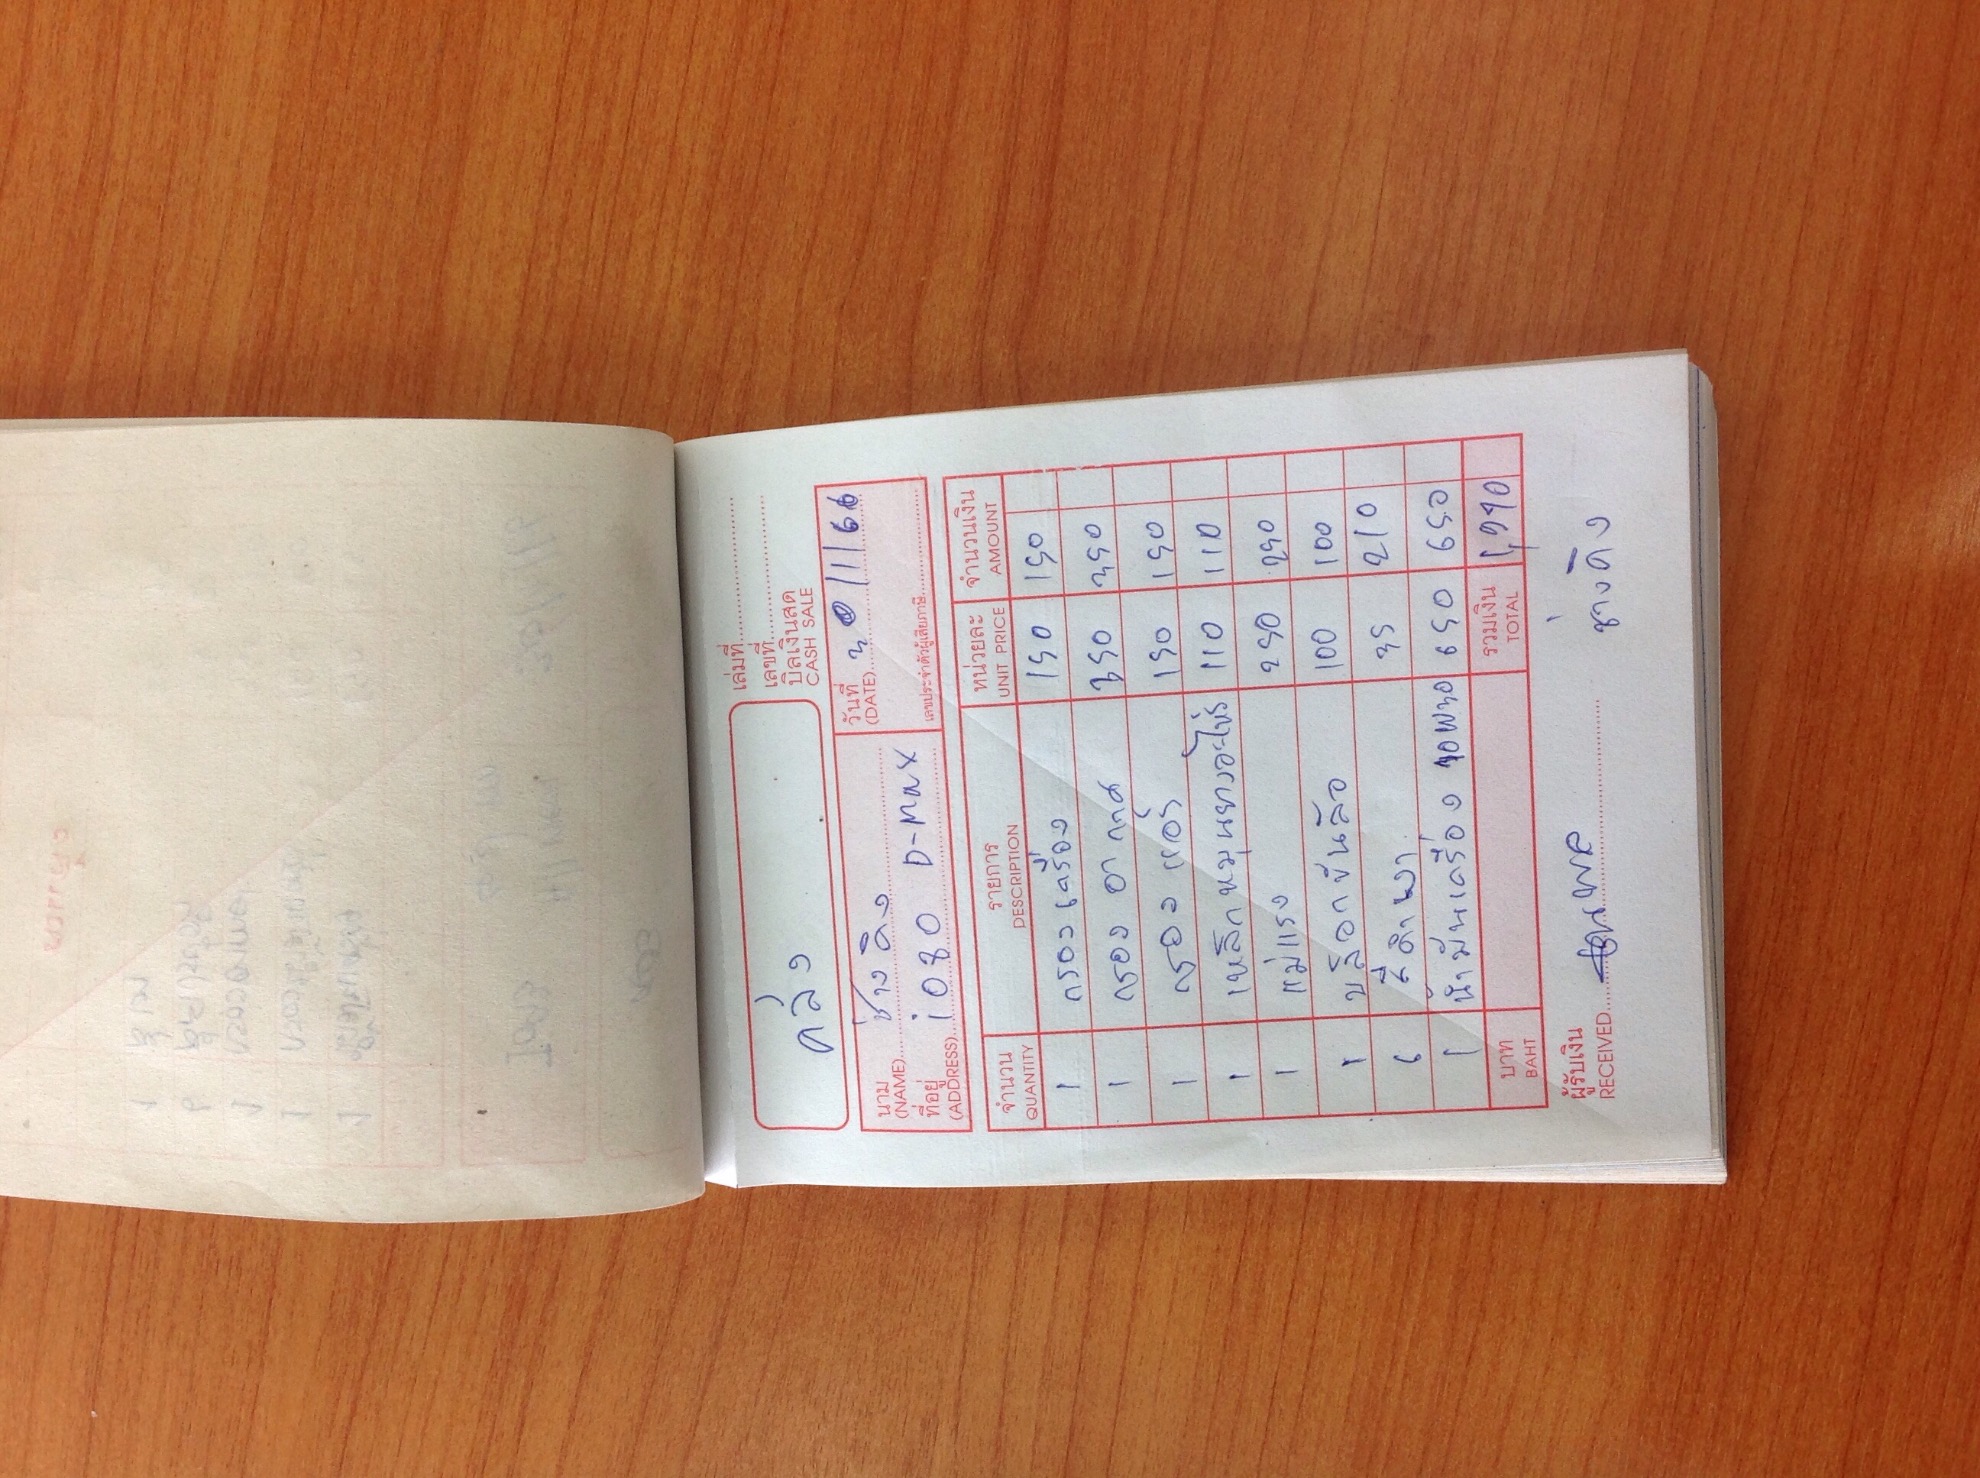 คล่ง
เล่มที่
เลขที่
บิลเงินสด
CASH SALE
นาม (NAME) ช่างดิ่ง
วันที่ (DATE) 30/1/66
ที่อยู่ (ADDRESS) 1080 D-Max
เลขประจำตัวผู้เสียภาษี
จำนวน รายการ หน่วยละ จำนวนเงิน
QUANTITY DESCRIPTION UNIT PRICE AMOUNT
1 กรองเครื่อง 150 150
1 กรองอากาศ 350 350
1 กรองแอร์ 150 150
1 เหล็กหมุนยางอะไหร่ 110 110
1 แม่แรง 250 250
1 บล็อกขันล้อ 100 100
6 สีดำเงา 35 210
1 น้ำมันเครื่อง 650 650
บาท รวมเงิน 1,970
BAHT TOTAL
ผู้รับเงิน
RECEIVED ช่างดิ่ง